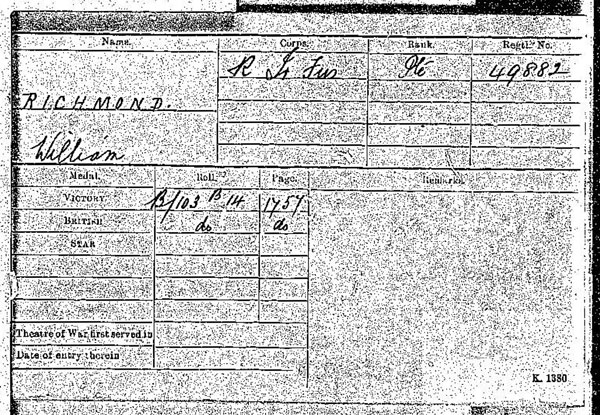 Name. Corps. Rank. Regtl. No.
R Ir Fus Pte 49882
RICHMOND.
William
Medal. Roll. Page. Remarks.
VICTORY B/103 B 14 1757
BRITISH do do
STAR
Theatre of War first served in
Date of entry therein
K. 1380